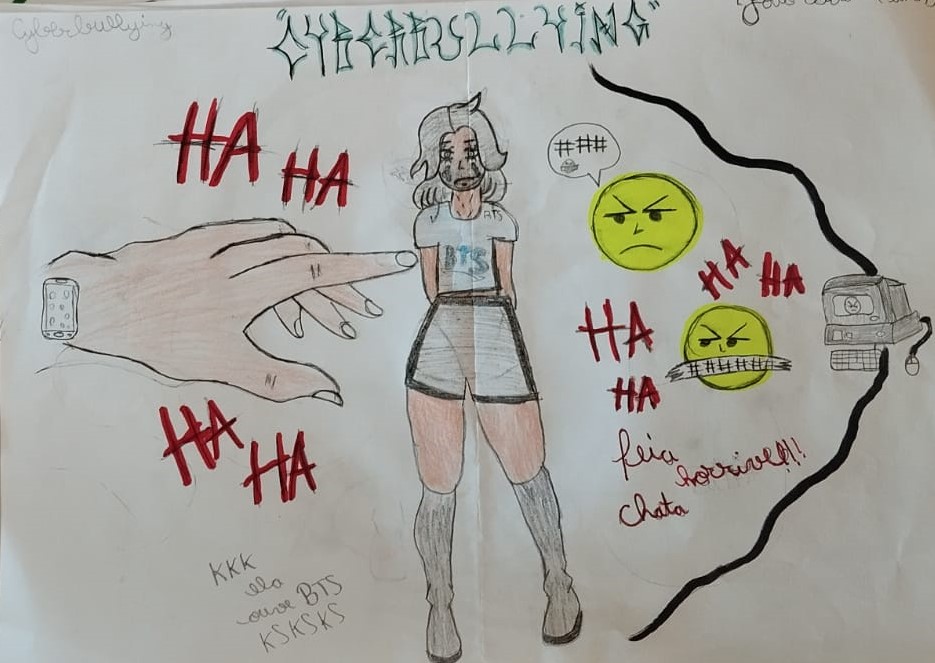 Cyberbullying
"CYBERBULLYING"
HA
HA
###
BTS
BTS
HA HA
HA
HA
######
HA
HA
feia
horrivel!!!
chata
KKK
ela
ouve BTS
KSKSKS